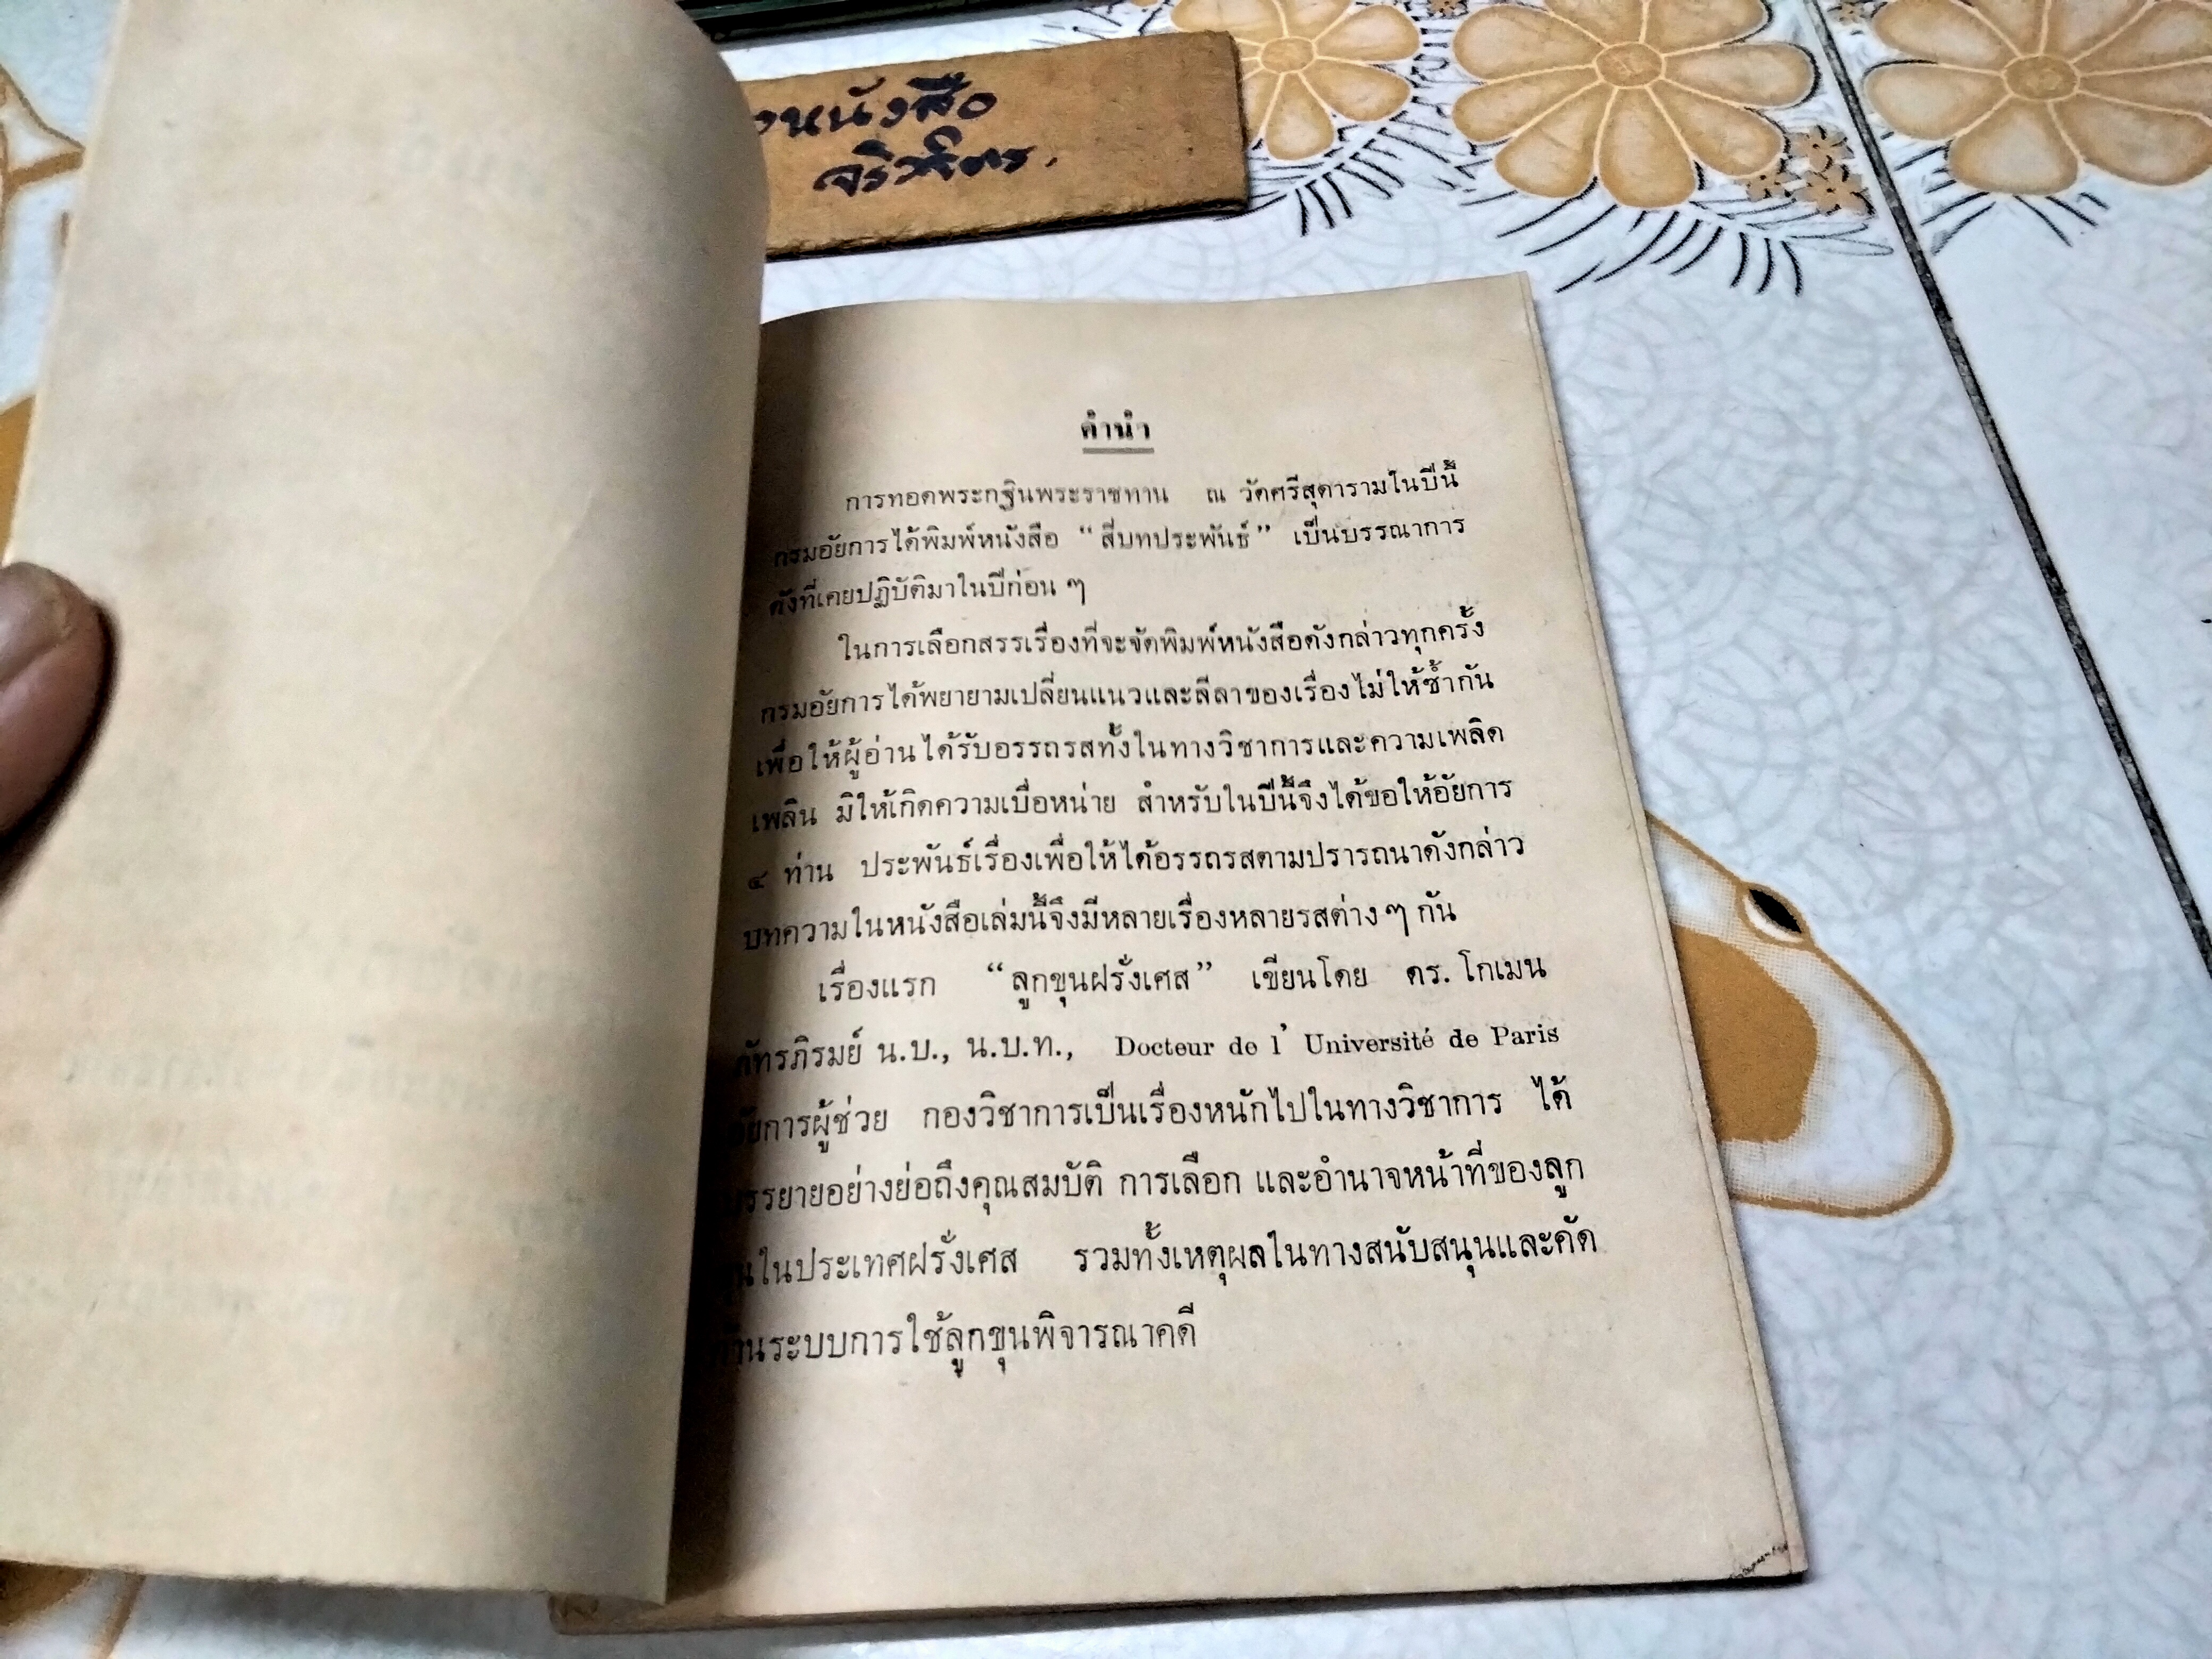 หนังสือ
คำนำ
การทอดพระกฐินพระราชทาน ณ วัดศรีสุดารามในปีนี้
กรมอัยการได้พิมพ์หนังสือ “สี่บทประพันธ์” เป็นบรรณาการ
ดังที่เคยปฏิบัติมาในปีก่อน ๆ
ในการเลือกสรรเรื่องที่จะจัดพิมพ์หนังสือดังกล่าวทุกครั้ง
กรมอัยการได้พยายามเปลี่ยนแนวและลีลาของเรื่องไม่ให้ซ้ำกัน
เพื่อให้ผู้อ่านได้รับอรรถรสทั้งในทางวิชาการและความเพลิด
เพลิน มิให้เกิดความเบื่อหน่าย สำหรับในปีนี้จึงได้ขอให้อัยการ
๔ ท่าน ประพันธ์เรื่องเพื่อให้ได้อรรถรสตามปรารถนาดังกล่าว
บทความในหนังสือเล่มนี้จึงมีหลายเรื่องหลายรสต่าง ๆ กัน
เรื่องแรก “ลูกขุนฝรั่งเศส” เขียนโดย ดร. โกเมน
ภัทรภิรมย์ น.บ., น.บ.ท., Docteur de l’ Université de Paris
อัยการผู้ช่วย กองวิชาการเป็นเรื่องหนักไปในทางวิชาการ ได้
บรรยายอย่างย่อถึงคุณสมบัติ การเลือก และอำนาจหน้าที่ของลูก
ขุนในประเทศฝรั่งเศส รวมทั้งเหตุผลในทางสนับสนุนและคัด
ค้านระบบการใช้ลูกขุนพิจารณาคดี